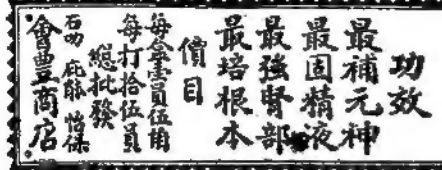 功效
最補元神
最固精液
最強腎部
最培根本
價目
每盒壹員伍角
每打拾伍員
總批發
石叻 庇能 怡保
會豐商店